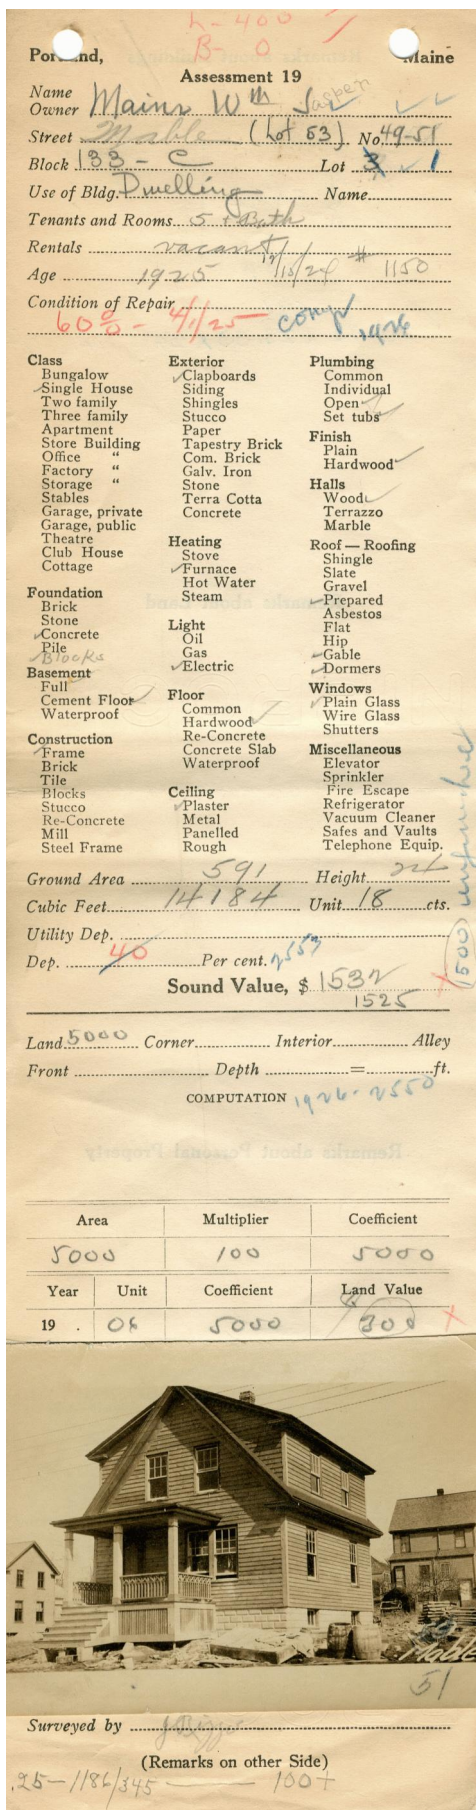 L-400
B-0
Portland, Maine
Assessment 19
Name
Owner Mains Wm Jasper
Street Mable (Lot 53) No. 49-51
Block 133-C Lot 3 1
Use of Bldg. Dwelling Name
Tenants and Rooms 5 + Bath
Rentals vacant
Age 1925 12/15/24 # 1150
Condition of Repair
60% - 4/1/25 Comp 1926
Class
Bungalow
Single House
Two family
Three family
Apartment
Store Building
Office "
Factory "
Storage "
Stables
Garage, private
Garage, public
Theatre
Club House
Cottage
Foundation
Brick
Stone
Concrete
Pile
Blocks
Basement
Full
Cement Floor
Waterproof
Construction
Frame
Brick
Tile
Blocks
Stucco
Re-Concrete
Mill
Steel Frame
Exterior
Clapboards
Siding
Shingles
Stucco
Paper
Tapestry Brick
Com. Brick
Galv. Iron
Stone
Terra Cotta
Concrete
Heating
Stove
Furnace
Hot Water
Steam
Light
Oil
Gas
Electric
Floor
Common
Hardwood
Re-Concrete
Concrete Slab
Waterproof
Ceiling
Plaster
Metal
Panelled
Rough
Plumbing
Common
Individual
Open
Set tubs
Finish
Plain
Hardwood
Halls
Wood
Terrazzo
Marble
Roof — Roofing
Shingle
Slate
Gravel
Prepared
Asbestos
Flat
Hip
Gable
Dormers
Windows
Plain Glass
Wire Glass
Shutters
Miscellaneous
Elevator
Sprinkler
Fire Escape
Refrigerator
Vacuum Cleaner
Safes and Vaults
Telephone Equip.
(500) unfinished
Ground Area 591 Height 24
Cubic Feet 14184 Unit 18 cts.
Utility Dep.
Dep. 40 Per cent. 2553
Sound Value, $ 1532
1525
Land 5000 Corner Interior Alley
Front Depth = ft.
COMPUTATION 1926-2550
Area Multiplier Coefficient
5000 100 5000
Year Unit Coefficient Land Value
19 . 06 5000 300
Mable
51
Surveyed by
(Remarks on other Side)
.25-1186/345 100+